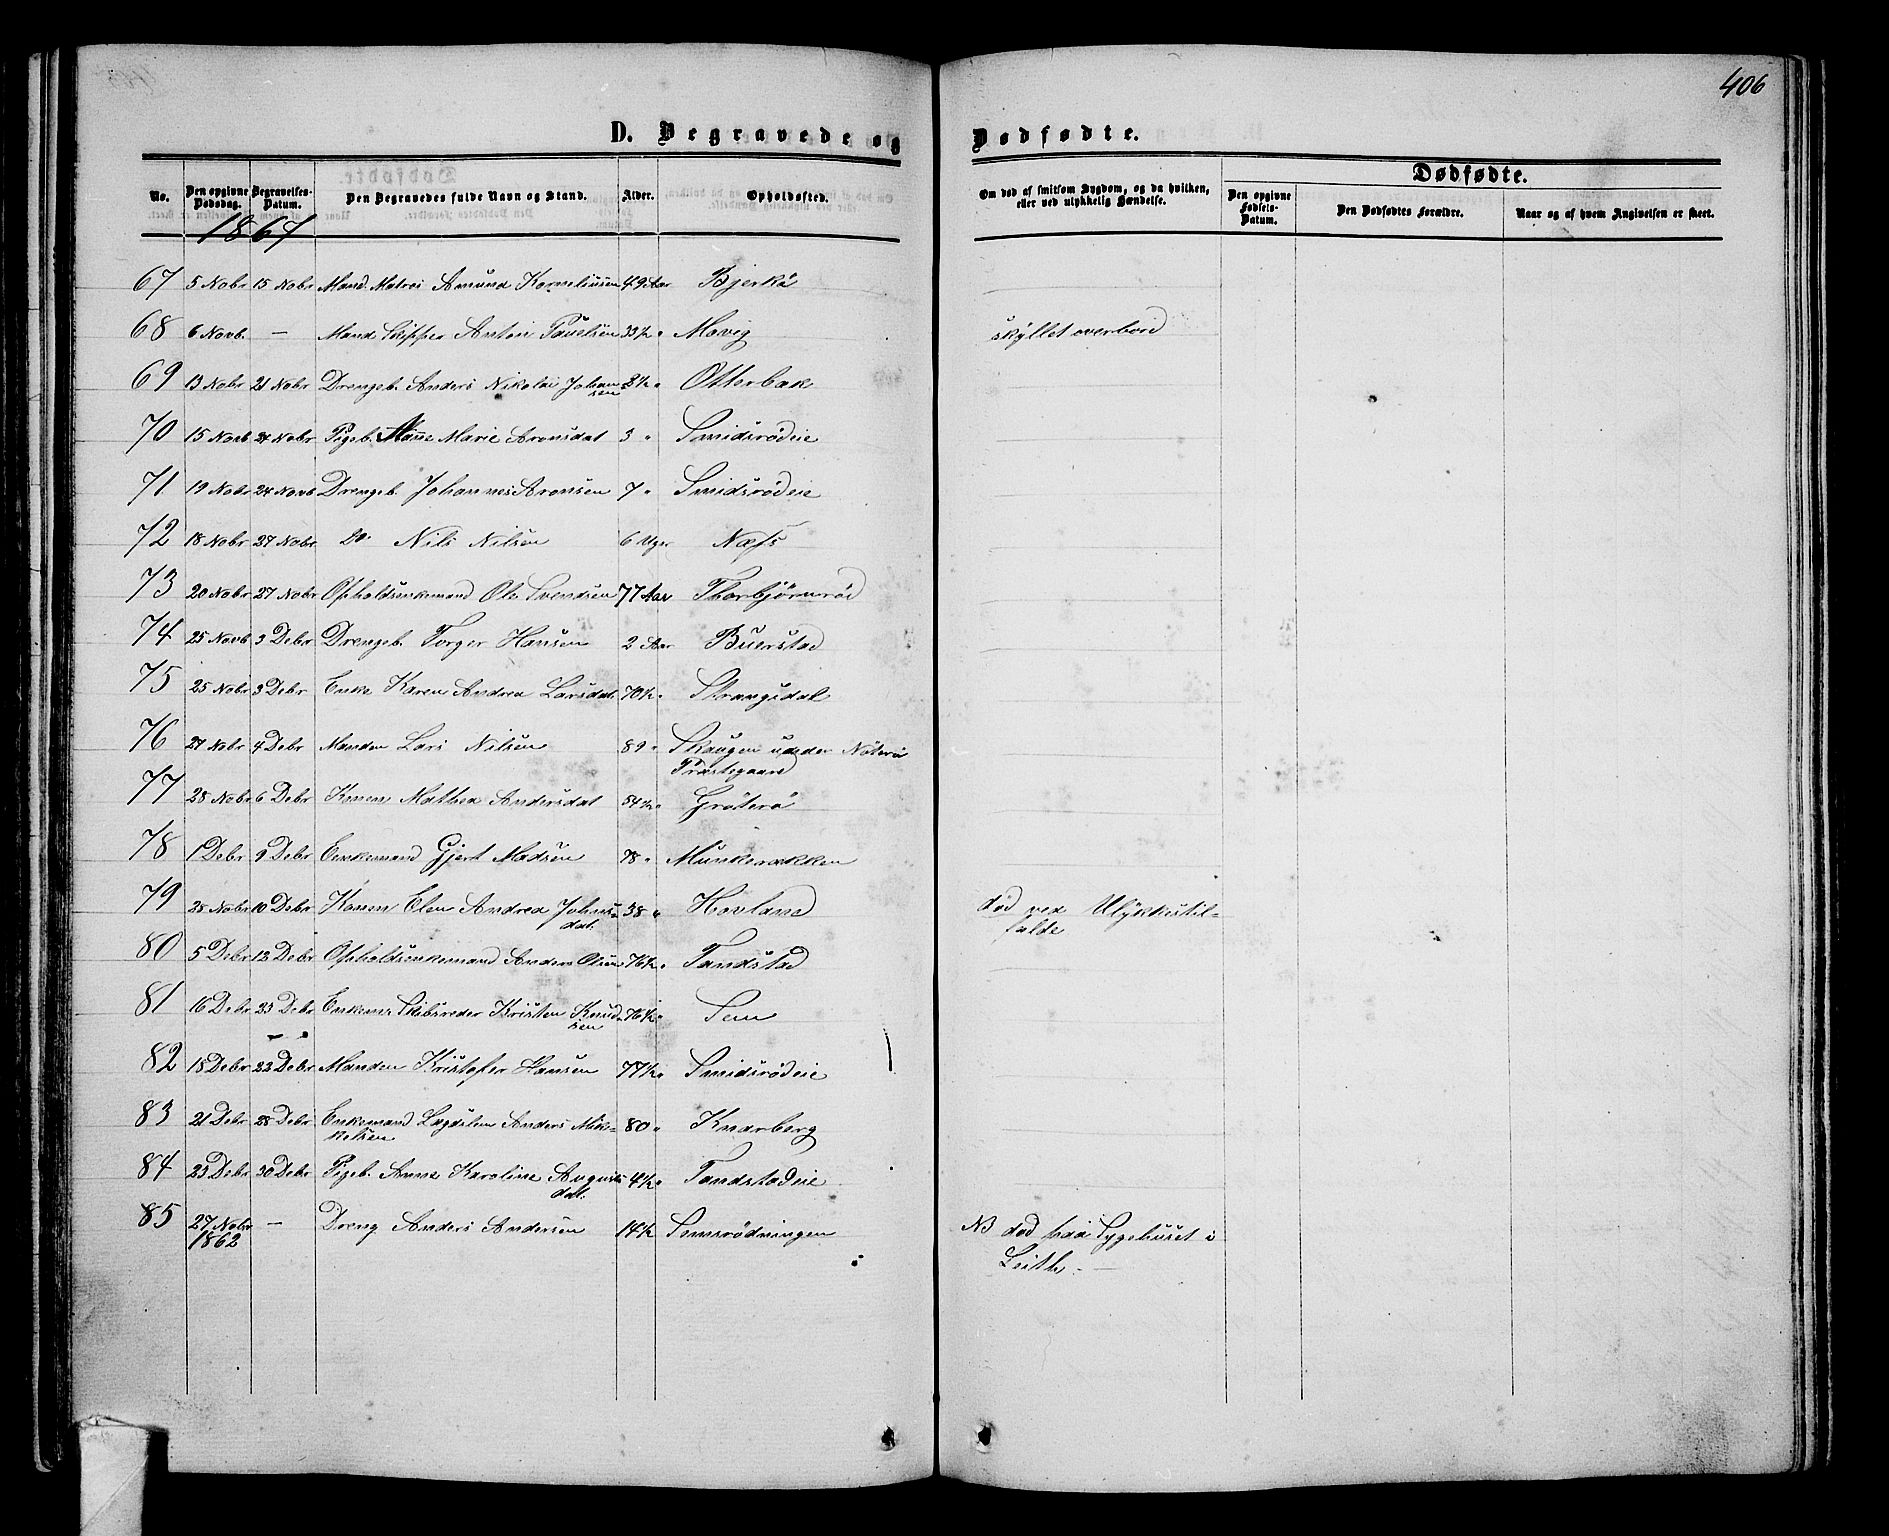 406
D. Begravede og Dødfødte.
No. Den opgivne Dødsdag. Begravelses-Datum. Den Begravedes fulde Navn og Stand. Alder. Opholdssted. Om død af smitsom Sygdom, og da hvilken, eller ved ulykkelig Hændelse. Dødfødte.
Den opgivne Fødsels-Datum. Den Dødfødtes Forældre. Naar og af hvem Angivelsen er skeet.
1864
67 5 Nobr 15 Nobr Mand. Matros Amund Korneliusen 49 Aar Bjerkø
68 6 Novb. — Mand Skipper Anton Paulsen 33½ " Movig skyllet overbord
69 13 Nobr 21 Nobr Drengeb. Anders Nikolai Johan 3½ " Otterbæk
sen
70 15 Novb 24 Nobr Pigeb. Anne Marie Aronsdat 3 " Smidsrødeie
71 19 Nobr 24 Novb Drengeb. Johannes Aronsen 7 " Smidsrødeie
72 18 Nobr 27 Nobr Do Nils Nilsen 6 Uger Næss
73 20 Nobr 27 Nobr Opholdsenkemand Ole Svendsen 77 Aar Thorbjørnrød
74 25 Novb 3 Debr Drengeb. Torger Hansen 2 Aar Buerstad
75 25 Nobr 3 Debr Enke Karen Andrea Larsdat. 70½ " Strængsdal
76 27 Nobr 4 Debr Manden Lars Nilsen 89 " Skaugen under Nøterø
Præstegaard
77 28 Nobr 6 Debr Konen Mathea Andersdat 54½ " Grøterø
78 1 Debr 9 Debr Enkemand Gjert Madsen 78 " Munkerækken
79 28 Nobr 10 Debr Konen Elen Andrea Johans- 38 " Hovland død ved Ulykkestil-
dat. falde
80 5 Debr 12 Debr Opholdsenkemand Anders Olsen 76½ " Tandstad
81 16 Debr 23 Debr Enkem. Skibsreder Kristen Knud- 76½ " Sem
sen
82 18 Debr 22 Debr Manden Kristofer Hansen 77½ " Smidsrødeie
83 21 Debr 28 Debr Enkemand Lægdslem Anders Mik- 80 " Knarberg
kelsen
84 23 Debr 30 Debr Pigeb. Anne Karoline August- 4½ " Tandstadeie
dat.
85 27 Nobr — Dreng Anders Andersen 14½ Semsrødningen NB død paa Sygehuset i
1862 Leith. —